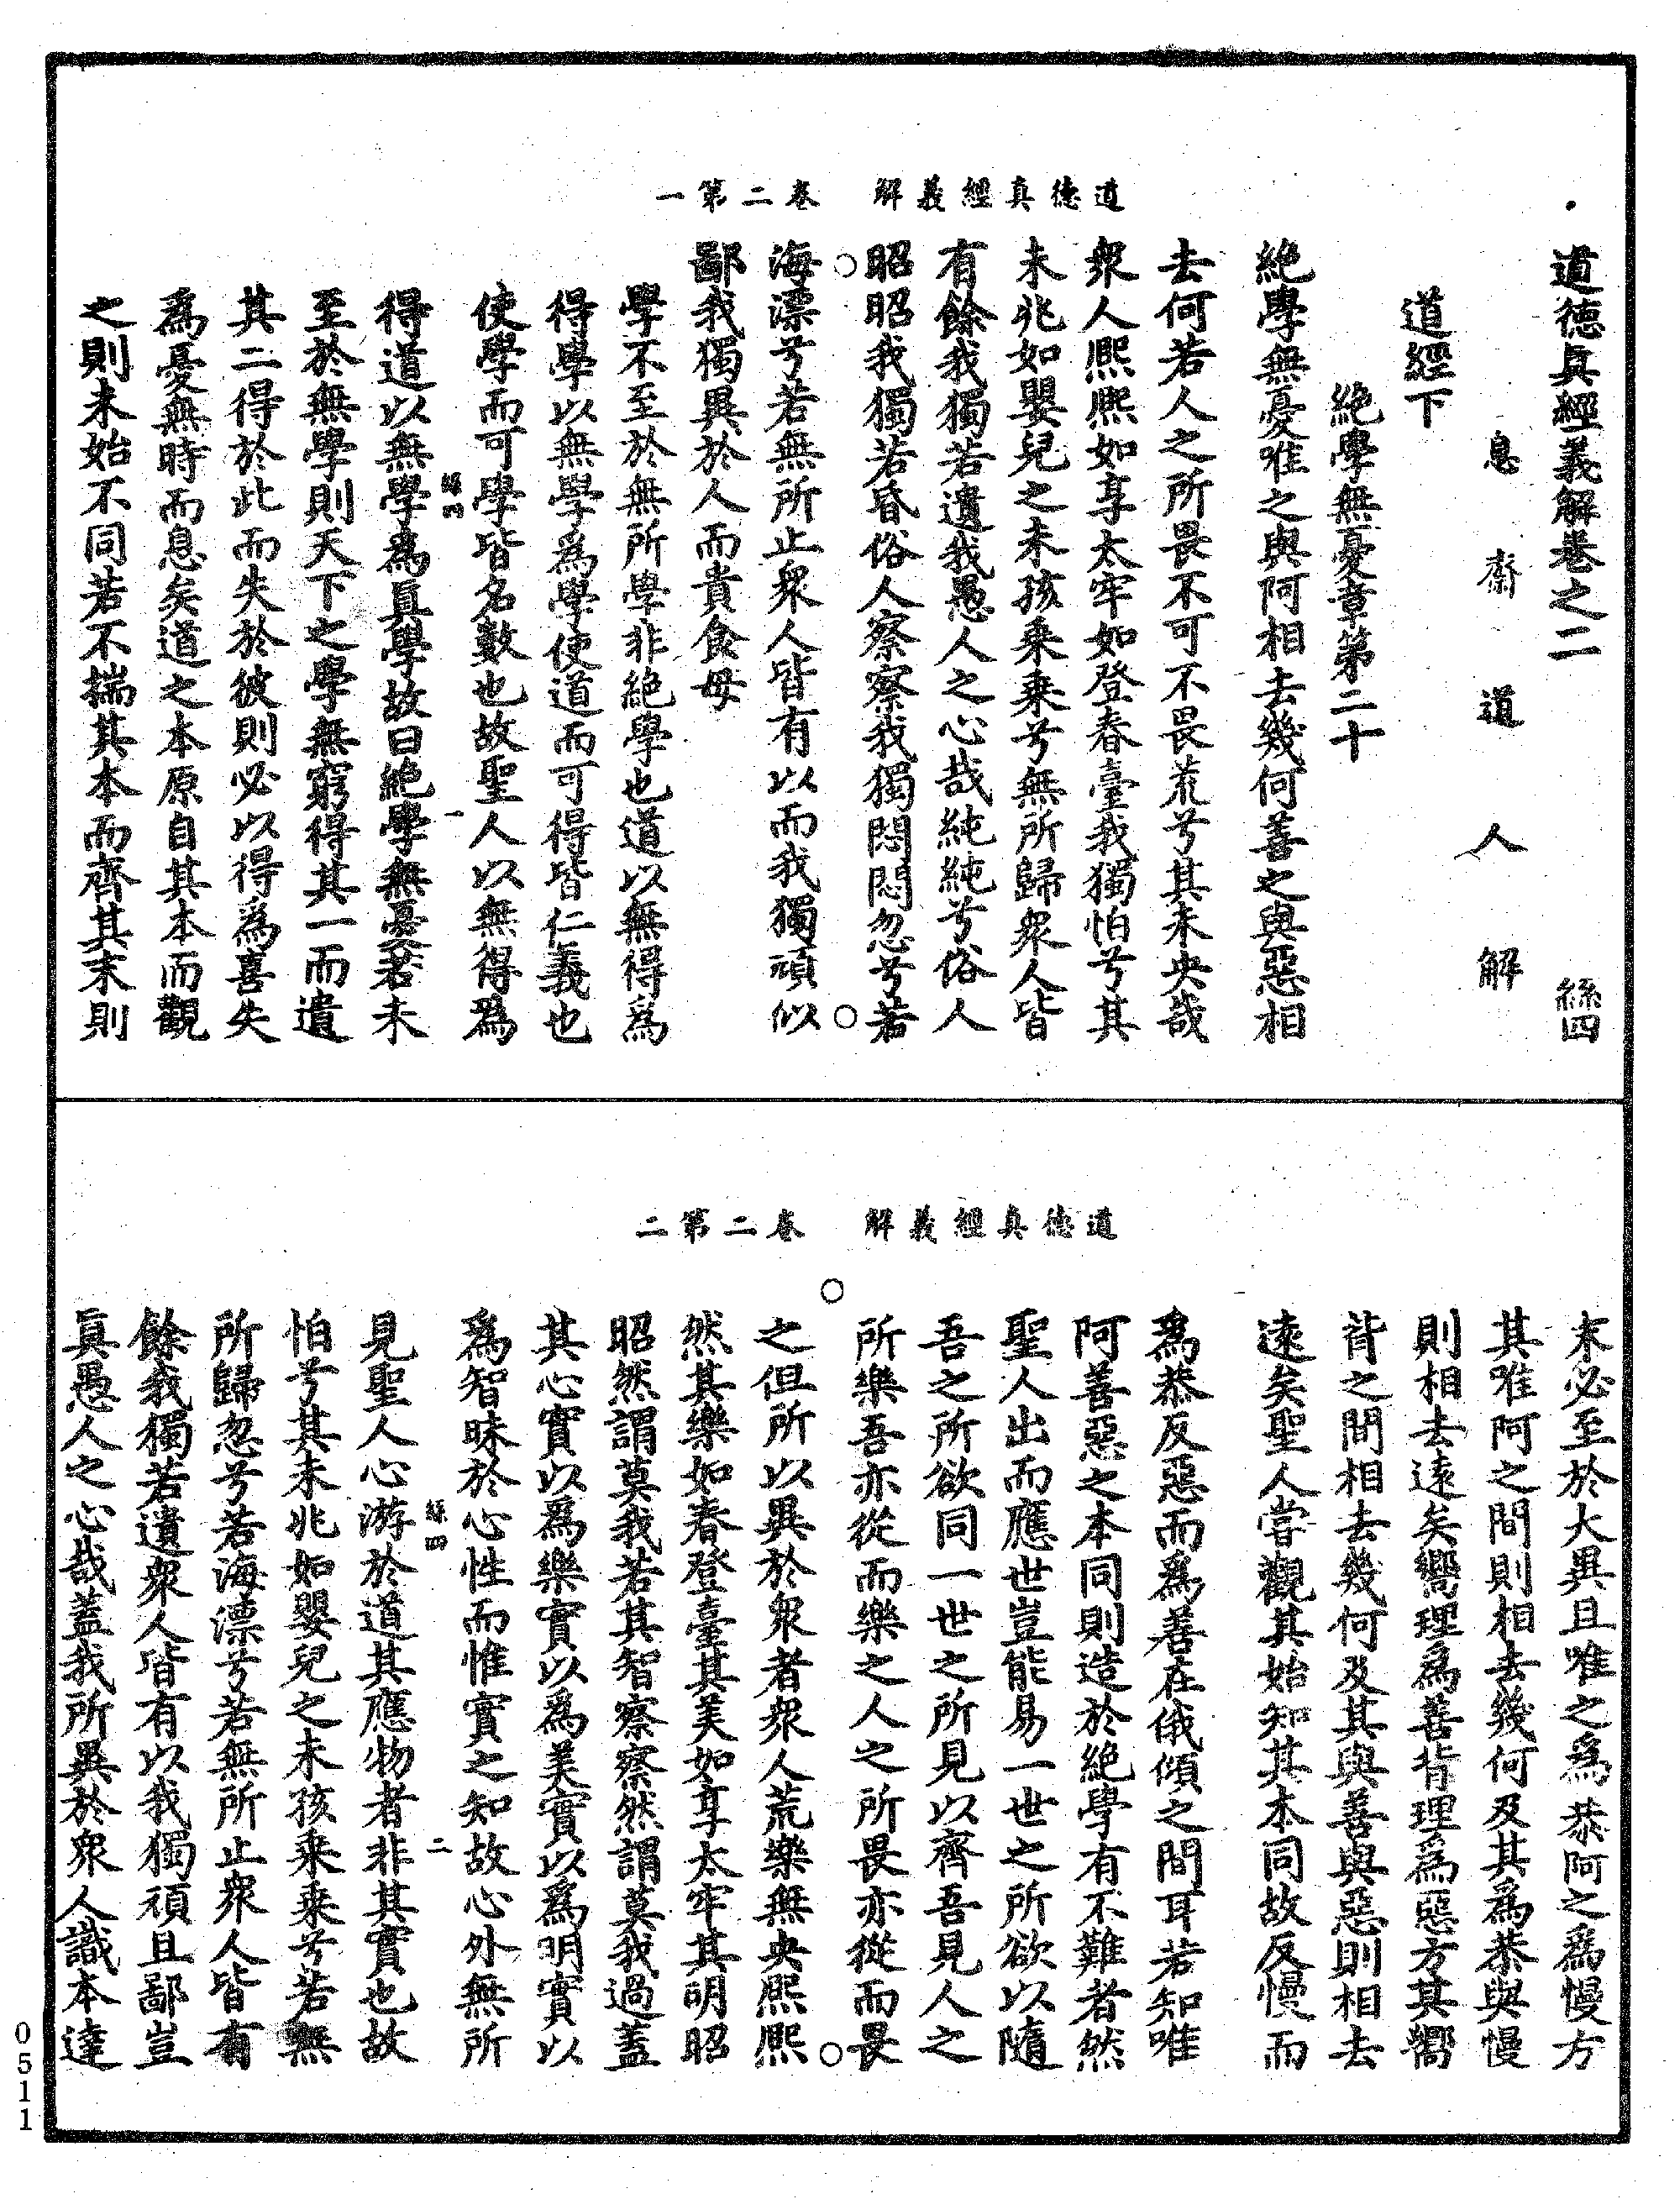 道德眞經義解卷第二一
道德眞經義解卷之二 絲四
息齋道人解
道經下
絕學無憂章第二十
絕學無憂唯之與阿相去幾何善之與惡相
去何若人之所畏不可不畏荒兮其未央哉
衆人熙熙如享太牢如登春臺我獨怕兮其
未兆如嬰兒之未孩乘乘兮無所歸衆人皆
有餘我獨若遺我愚人之心哉純純兮俗人
昭昭我獨若昏俗人察察我獨悶悶忽兮若
海漂兮若無所止衆人皆有以而我獨頑似
鄙我獨異於人而貴食母
學不至於無所學非絕學也道以無得爲
得學以無學爲學使道而可得皆仁義也
使學而可學皆名數也故聖人以無得爲
絲四 一
得道以無學爲眞學故曰絕學無憂若未
至於無學則天下之學無窮得其一而遺
其二得於此而失於彼則必以得爲喜失
爲憂無時而息矣道之本原自其本而觀
之則未始不同若不揣其本而齊其末則
道德眞經義解 卷二第二
末必至於大異且唯之爲恭阿之爲慢方
其唯阿之間則相去幾何及其爲恭與慢
則相去遠矣嚮理爲善背理爲惡方其嚮
背之間相去幾何及其與善與惡則相去
遠矣聖人嘗觀其始知其本同故反慢而
爲恭反惡而爲善在俄傾之間耳若知唯
阿善惡之本同則造於絕學有不難者然
聖人出而應世豈能易一世之所欲以隨
吾之所欲同一世之所見以齊吾見人之
所樂吾亦從而樂之人之所畏亦從而畏
之但所以異於衆者衆人荒樂無央熙熙
然其樂如春登臺其美如享太牢其明昭
昭然謂莫我若其智察察然謂莫我過蓋
其心實以爲樂實以爲美實以爲明實以
爲智昧於心性而惟實之知故心外無所
絲四 二
見聖人心游於道其應物者非其實也故
怕兮其未兆如嬰兒之未孩乘乘兮若無
所歸忽兮若海漂兮若無所止衆人皆有
餘我獨若遺衆人皆有以我獨頑且鄙豈
眞愚人之心哉蓋我所異於衆人識本達
0511